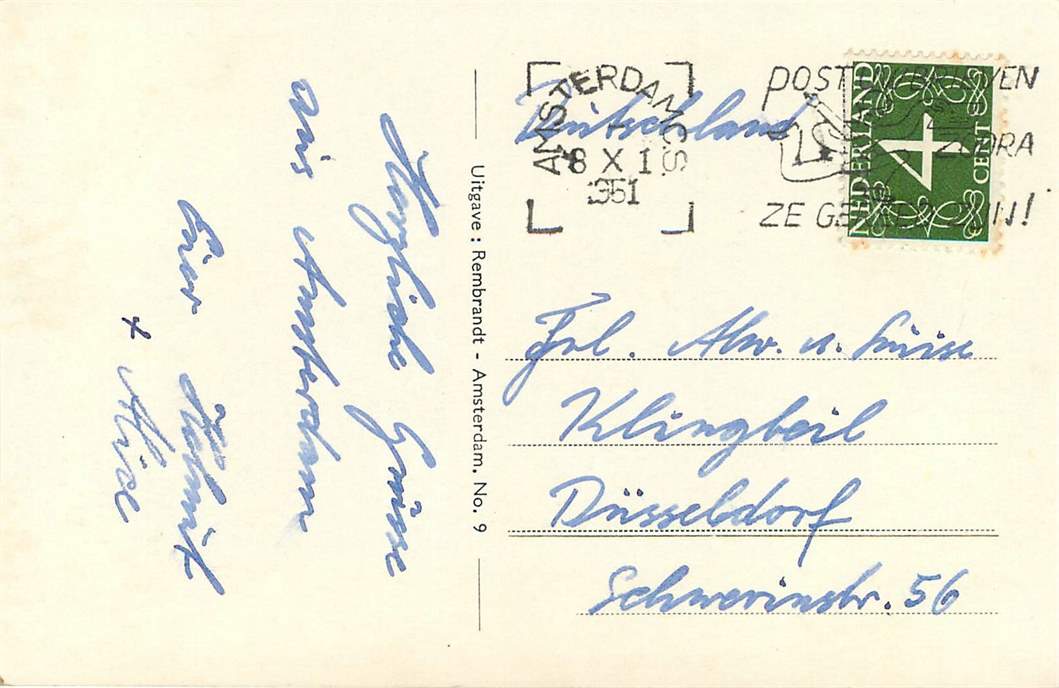 Herzliche Grüsse
aus Amsterdam
Euer Helmut
+ Alice
Uitgave : Rembrandt - Amsterdam. No. 9
AMSTERDAM C.S
8 X 1
1951
POST
ZE
NEDERLAND
4
CENT
Deutschland
Frl. Alw. u. Luise
Klingbeil
Düsseldorf
Schwerinstr. 56